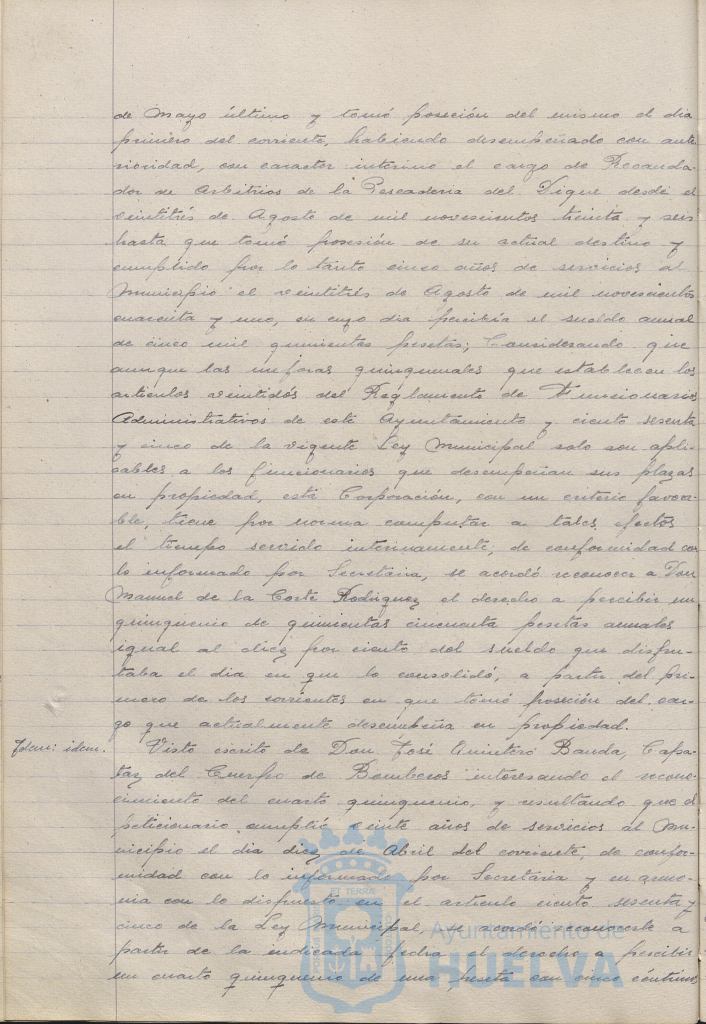 de Mayo último y tomó posesión del mismo el dia
primero del corriente, habiendo desempeñado con ante
rioridad, con caracter interino el cargo de Recauda-
dor de Arbitrios de la Pescaderia del Dique desde el
veintitrés de Agosto de mil novescientos treinta y seis
hasta que tomó posesión de su actual destino y
cumplido por lo tanto cinco años de servicios al
Municipio el veintitrés de Agosto de mil novescientos
cuarenta y uno, en cuyo dia percibía el sueldo anual
de cinco mil quinientas pesetas; Considerando que
aunque las mejoras quinquenales que establecen los
artículos veintidós del Reglamento de Funcionarios
Administrativos de este Ayuntamiento y ciento sesenta
y cinco de la vigente Ley Municipal solo son apli-
cables a los funcionarios que desempeñan sus plazas
en propiedad, esta Corporación, con un criterio favora-
ble, tiene por norma computar a tales efectos
el tiempo servido interinamente, de conformidad con
lo informado por Secretaria, se acordó reconocer a Don
Manuel de la Corte Rodríguez el derecho a percibir un
quinquenio de quinientas cincuenta pesetas anuales
igual al diez por ciento del sueldo que disfru-
taba el dia en que lo consolidó, a partir del pri-
mero de los corrientes en que tomó posesión del car-
go que actualmente desempeña en propiedad.
Idem: idem. Visto escrito de Don José Quintero Banda, Capa-
taz del Cuerpo de Bomberos interesando el recono-
cimiento del cuarto quinquenio, y resultando que el
peticionario cumplió veinte años de servicios al Mu-
nicipio el dia diez de Abril del corriente, de confor-
midad con lo informado por Secretaria y en armo-
nia con lo dispuesto en el articulo ciento sesenta y
cinco de la Ley Municipal, se acordó reconocerle a
partir de la indicada fecha el derecho a percibir
un cuarto quinquenio de una peseta con cinco céntimos
ET TERRÆ
Ayuntamiento de
HUELVA